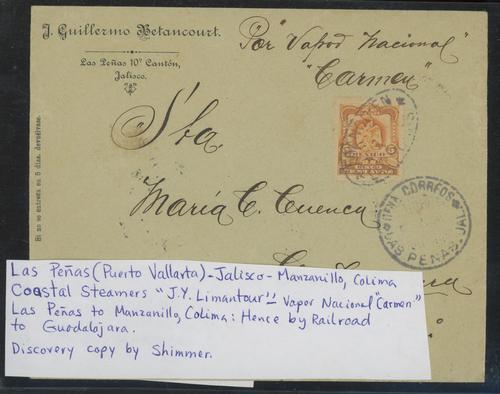 J. Guillermo Betancourt.
Las Peñas 10º Cantón,
Jalisco.
Por "Vapor Nacional"
"Carmen"
Si no se entrega en 5 días, devuélvase.
Srta
MEXICO
María C. Cuenca
CORREOS
LAS PEÑAS. JAL.
Las Peñas (Puerto Vallarta) - Jalisco - Manzanillo, Colima
Coastal Steamers "J.Y. Limantour" Vapor Nacional "Carmen"
Las Peñas to Manzanillo, Colima: Hence by Railroad
to Guadalajara.
Discovery copy by Shimmer.